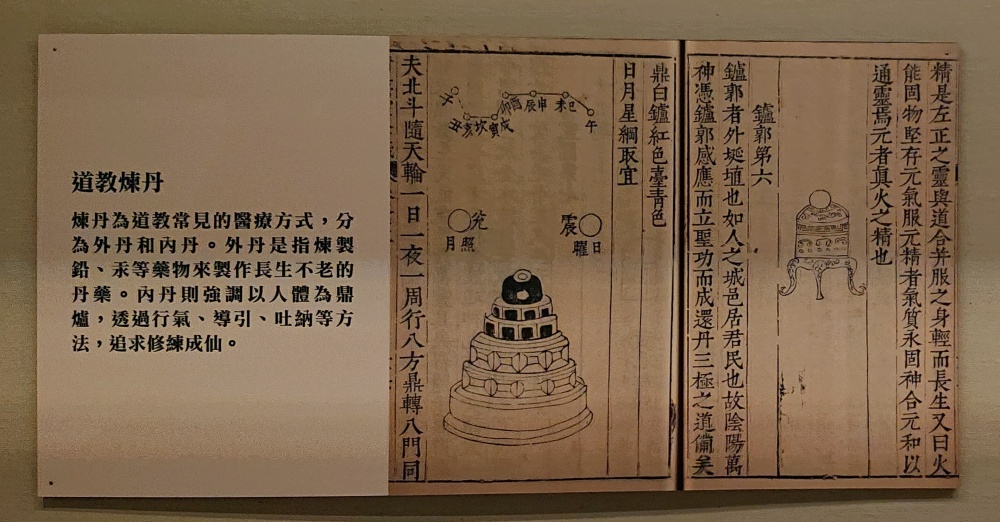 道教煉丹
煉丹為道教常見的醫療方式，分
為外丹和內丹。外丹是指煉製
鉛、汞等藥物來製作長生不老的
丹藥。內丹則強調以人體為鼎
爐，透過行氣、導引、吐納等方
法，追求修練成仙。
精是左正之靈與道合并服之身輕而長生又曰火
能固物堅存元氣服元精者氣質永固神合元和以
通靈焉元者真火之精也
鑪郭第六
鑪郭者外埏埴也如人之城邑居君民也故陰陽萬
神憑鑪郭感應而立聖功而成還丹三極之道備矣
鼎白鑪紅色臺青色
日月星綱取宜
午
巳
未
申
辰
酉
卯
戌
寅
坎
亥
丑
子
震
日曜
兌
月照
夫北斗隨天輪一日一夜一周行八方鼎轉八門同